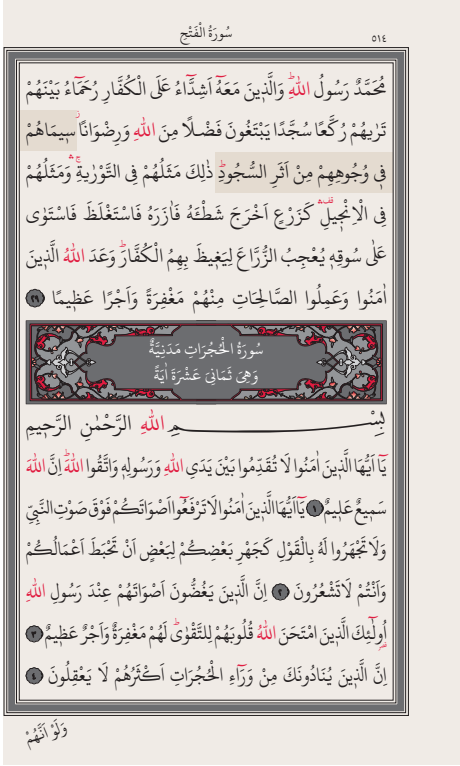 سُورَةُ الْفَتْحِ
٥١٤
مُحَمَّدٌ رَسُولُ اللهِ وَالَّذ۪ينَ مَعَهُٓ اَشِدَّٓاءُ عَلَى الْكُفَّارِ رُحَمَٓاءُ بَيْنَهُمْ
تَرٰيهُمْ رُكَّعًا سُجَّدًا يَبْتَغُونَ فَضْلًا مِنَ اللهِ وَرِضْوَانًاۘ س۪يمَاهُمْ
ف۪ي وُجُوهِهِمْ مِنْ اَثَرِ السُّجُودِۜ ذٰلِكَ مَثَلُهُمْ فِي التَّوْرٰيةِۚۛ وَمَثَلُهُمْ
فِي الْاِنْج۪يلِ۠ۛ كَزَرْعٍ اَخْرَجَ شَطْـَٔهُ فَاٰزَرَهُ فَاسْتَغْلَظَ فَاسْتَوٰى
عَلٰى سُوقِه۪ يُعْجِبُ الزُّرَّاعَ لِيَغ۪يظَ بِهِمُ الْكُفَّارَۜ وَعَدَ اللهُ الَّذ۪ينَ
اٰمَنُوا وَعَمِلُوا الصَّالِحَاتِ مِنْهُمْ مَغْفِرَةً وَاَجْرًا عَظ۪يمًا ٢٩
سُورَةُ الْحُجُرَاتِ مَدَنِيَّةٌ
وَهِيَ ثَمَانِيَ عَشْرَةَ اٰيَةً
بِسْمِ اللهِ الرَّحْمٰنِ الرَّح۪يمِ
يَٓا اَيُّهَا الَّذ۪ينَ اٰمَنُوا لَا تُقَدِّمُوا بَيْنَ يَدَيِ اللهِ وَرَسُولِه۪ وَاتَّقُوا اللهَۜ اِنَّ اللهَ
سَم۪يعٌ عَل۪يمٌ ١ يَٓا اَيُّهَا الَّذ۪ينَ اٰمَنُوا لَا تَرْفَعُٓوا اَصْوَاتَكُمْ فَوْقَ صَوْتِ النَّبِيِّ
وَلَا تَجْهَرُوا لَهُ بِالْقَوْلِ كَجَهْرِ بَعْضِكُمْ لِبَعْضٍ اَنْ تَحْبَطَ اَعْمَالُكُمْ
وَاَنْتُمْ لَا تَشْعُرُونَ ٢ اِنَّ الَّذ۪ينَ يَغُضُّونَ اَصْوَاتَهُمْ عِنْدَ رَسُولِ اللهِ
اُو۬لٰٓئِكَ الَّذ۪ينَ امْتَحَنَ اللهُ قُلُوبَهُمْ لِلتَّقْوٰىۜ لَهُمْ مَغْفِرَةٌ وَاَجْرٌ عَظ۪يمٌ ٣
اِنَّ الَّذ۪ينَ يُنَادُونَكَ مِنْ وَرَٓاءِ الْحُجُرَاتِ اَكْثَرُهُمْ لَا يَعْقِلُونَ ٤
وَلَوْ اَنَّهُمْ